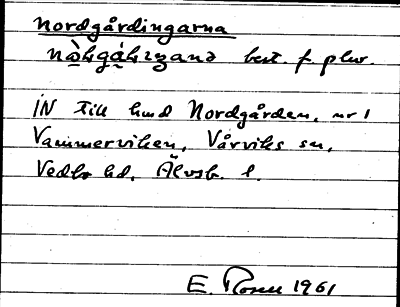 Nordgårdingarna
best. f. plur.
IN till hmd Nordgården, nr 1
Vammerviken, Vårviks sn,
Vedbo hd, Älvsb. l.
E. Rosell 1961